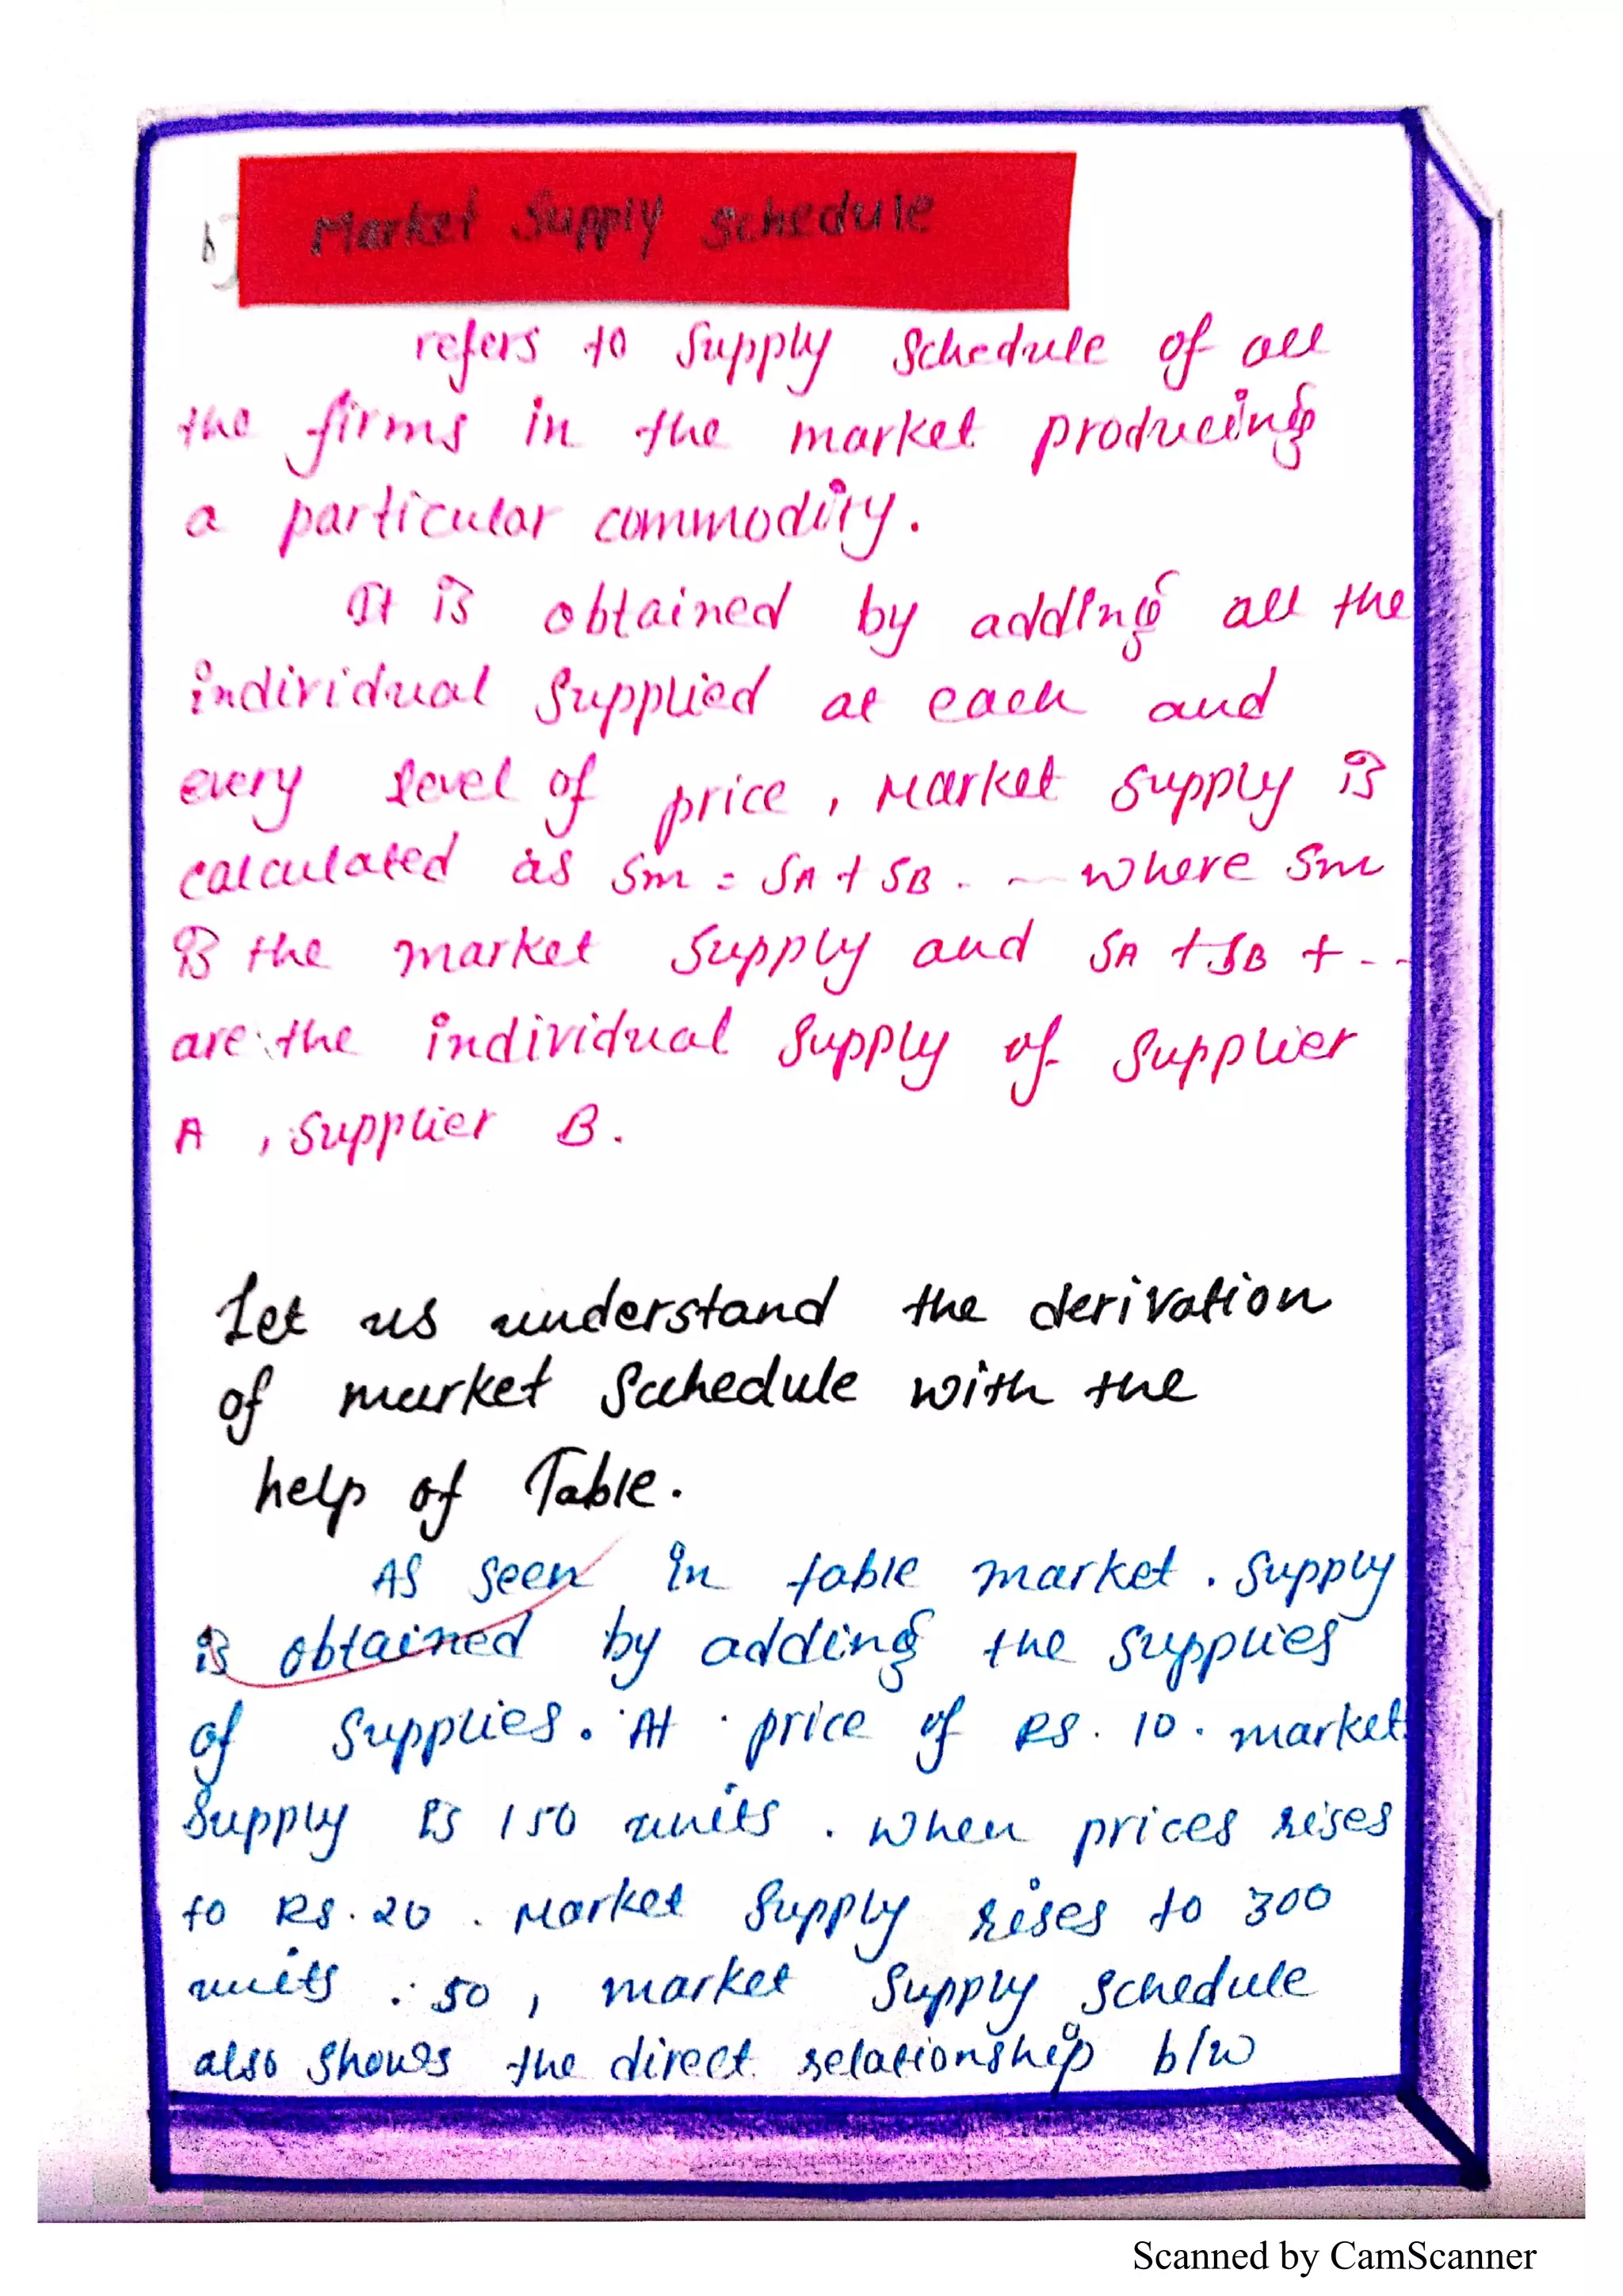 b) Market Supply Schedule
refers to Supply Schedule of all
the firms in the market producing
a particular commodity.
It is obtained by adding all the
individual Supplied at each and
every level of price, Market Supply is
calculated as Sm = SA + SB . . - where Sm
is the market Supply and SA + SB + - -
are the individual Supply of Supplier
A , Supplier B.
Let us understand the derivation
of market Schedule with the
help of Table.
As seen in table market . Supply
is obtained by adding the Supplies
of Supplies. At price of RS. 10. market
Supply is 150 units . When prices rises
to RS. 20 . Market Supply rises to 300
units . 50 , market Supply Schedule
also shows the direct relationship b/w
Scanned by CamScanner